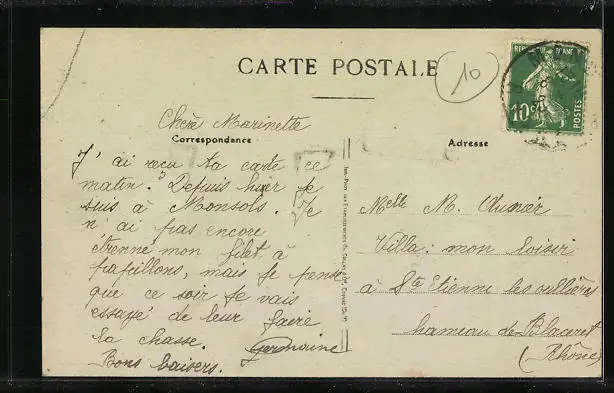 CARTE POSTALE
10
REPUBLIQUE FRANÇAISE
10
Chère Marinette
Correspondance
Adresse
J'ai reçu ta carte ce
matin. Depuis hier je
suis à Monsols. Je
n'ai pas encore
étrenné mon filet à
papillons, mais je pense
que ce soir je vais
essayé de leur faire
la chasse. Germaine
Bons baisers.
Melle M.
Villa: mon loisir
à Ste Etienne les
hameau de Blaceret
(Rhône)